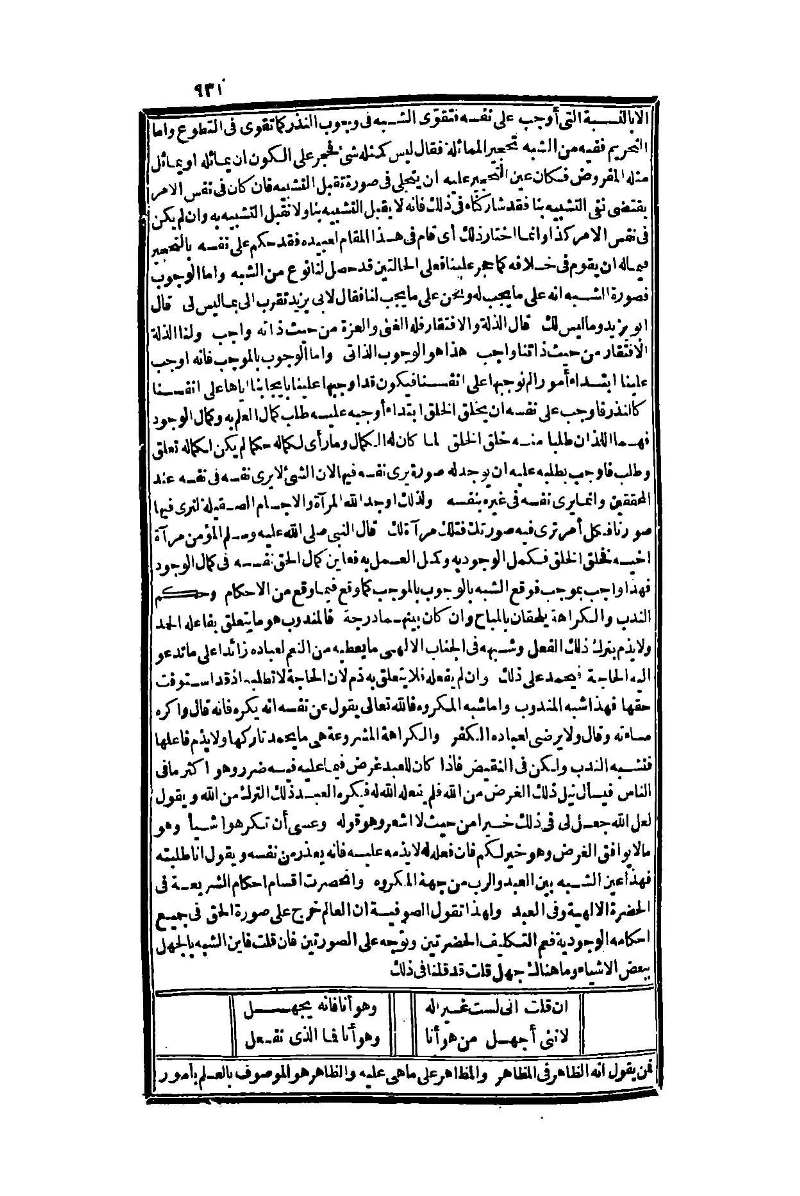 ٩٣١
الا بالنسبة التى أوجب على نفسه فتقوى الشبه فى وجوب النذر كما تقوى فى التطوع واما
التحريم ففيه من الشبه تحجير المماثلة فقال ليس كمثله شئ فحجر على الكون ان يماثله او يماثل
مثله المفروض فكان عين التحجير عليه ان يتجلى فى صورة تقبل التشبيه فان كان فى نفس الامر
يقتضى نفى التشبيه بنا فقد شاركناه فى ذلك فانه لا يقبل التشبيه بنا ولا نقبل التشبيه به وان لم يكن
فى نفس الامر كذا وانما اختار ذلك أى قام فى هذا المقام لعبيده فقد حكم على نفسه بالتحجير
فيما له ان يقوم فى خلافه كما حجر علينا فعلى الحالتين قد حصل لنا نوع من الشبه واما الوجوب
فصورة الشبه انه على ما يجب له ونحن على ما يجب لنا فقال لابى يزيد تقرب الى بما ليس لى قال
ابو يزيد وما ليس لك قال الذلة والافتقار فله الغنى والعزة من حيث ذاته واجب ولنا الذلة
الافتقار من حيث ذاتنا واجب هذا هو الوجوب الذاتى واما الوجوب بالموجب فانه اوجب
علينا ابتداء أمورا لم نوجبها على انفسنا فيكون قد اوجبها علينا بايجابنا اياها على انفسنا
كالنذر فاوجب على نفسه ان يخلق الخلق ابتداء أوجبه عليه طلب كمال العلم به وكمال الوجود
فهما اللذان طلبا منه خلق الخلق لما كان له الكمال وما رأى لكماله حكما لم يكن لكماله تعلق
وطلب فاوجب بطلبه عليه ان يوجد له صورة يرى نفسه فيها لان الشئ لا يرى نفسه فى نفسه عند
المحققين وانما يرى نفسه فى غيره بنفسه ولذلك اوجد الله المرآة والاجسام الصقيلة لنرى فيها
صورنا فكل أمر ترى فيه صورتك فتلك مرآة لك قال النبى صلى الله عليه وسلم المؤمن مرآة
اخيه فخلق الخلق فكمل الوجود به وكمل العلم به فعاين كمال الحق نفسه فى كمال الوجود
فهذا واجب بموجب فوقع الشبه بالوجوب بالموجب كما وقع فيما وقع من الاحكام وحكم
الندب والكراهة يلحقان بالمباح وان كان بينهما درجة فالمندوب هو ما يتعلق بفاعله الحمد
ولا يذم بترك ذلك الفعل وشبهه فى الجناب الالهى ما يعطيه من النعم لعباده زائدا على ما تدعو
اليه الحاجة فيحمد على ذلك وان لم يفعله فلا يتعلق به ذم لان الحاجة لا تطلبه اذ قد استوفت
حقها فهذا شبه المندوب واما شبه المكروه فالله تعالى يقول عن نفسه انه يكره فانه قال واكره
مساءته وقال ولا يرضى لعباده الكفر والكراهة المشروعة هى ما يحمد تاركها ولا يذم فاعلها
فتشبه الندب ولكن فى النقيض فاذا كان للعبد غرض فيما عليه فيه ضرر وهو اكثر ما فى
الناس فيسأل نيل ذلك الغرض من الله فلم يفعله الله له فيكره العبد ذلك الترك من الله ويقول
لعل الله جعل لى فى ذلك خيرا من حيث لا اشعر وهو قوله وعسى أن تكرهوا شيأ وهو
ما لا يوافق الغرض وهو خير لكم فان فعله له لا يذمه عليه فانه يعذر من نفسه ويقول انا طلبته
فهذا عين الشبه بين العبد والرب من جهة المكروه وانحصرت اقسام احكام الشريعة فى
الحضرة الالهية وفى العبد ولهذا تقول الصوفية ان العالم خرج على صورة الحق فى جميع
احكامه الوجودية فعم التكليف الحضرتين وتوجه على الصورتين فان قلت فاين الشبه بالجهل
ببعض الاشياء وما هنالك جهل قلت قد قلنا فى ذلك
ان قلت انى لست غير اله وهو أنا فانه يجهل
لاننى أجهل من هو أنا وهو أنا فما الذى نفعل
فمن يقول انه الظاهر فى المظاهر والمظاهر على ما هى عليه والظاهر هو الموصوف بالعلم بأمور